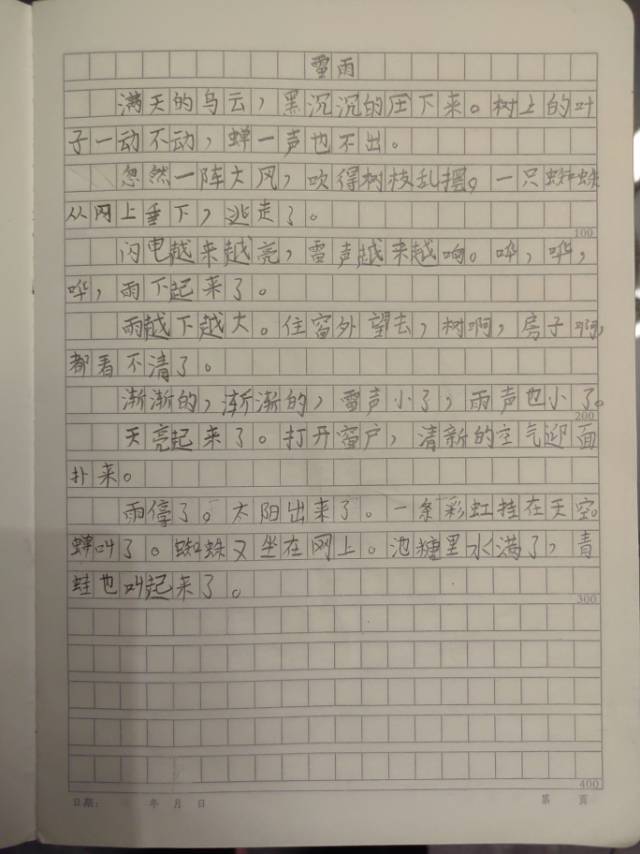 雷雨
满天的乌云，黑沉沉的压下来。树上的叶
子一动不动，蝉一声也不出。
忽然一阵大风，吹得树枝乱摆。一只蜘蛛
从网上垂下，逃走了。
100
闪电越来越亮，雷声越来越响。哗，哗，
哗，雨下起来了。
雨越下越大。住窗外望去，树啊，房子啊，
都看不清了。
渐渐的，渐渐的，雷声小了，雨声也小了。
200
天亮起来了。打开窗户，清新的空气迎面
扑来。
雨停了。太阳出来了。一条彩虹挂在天空。
蝉叫了。蜘蛛又坐在网上。池糖里水满了，青
蛙也叫起来了。
300
400
日期： 年 月 日 第 页